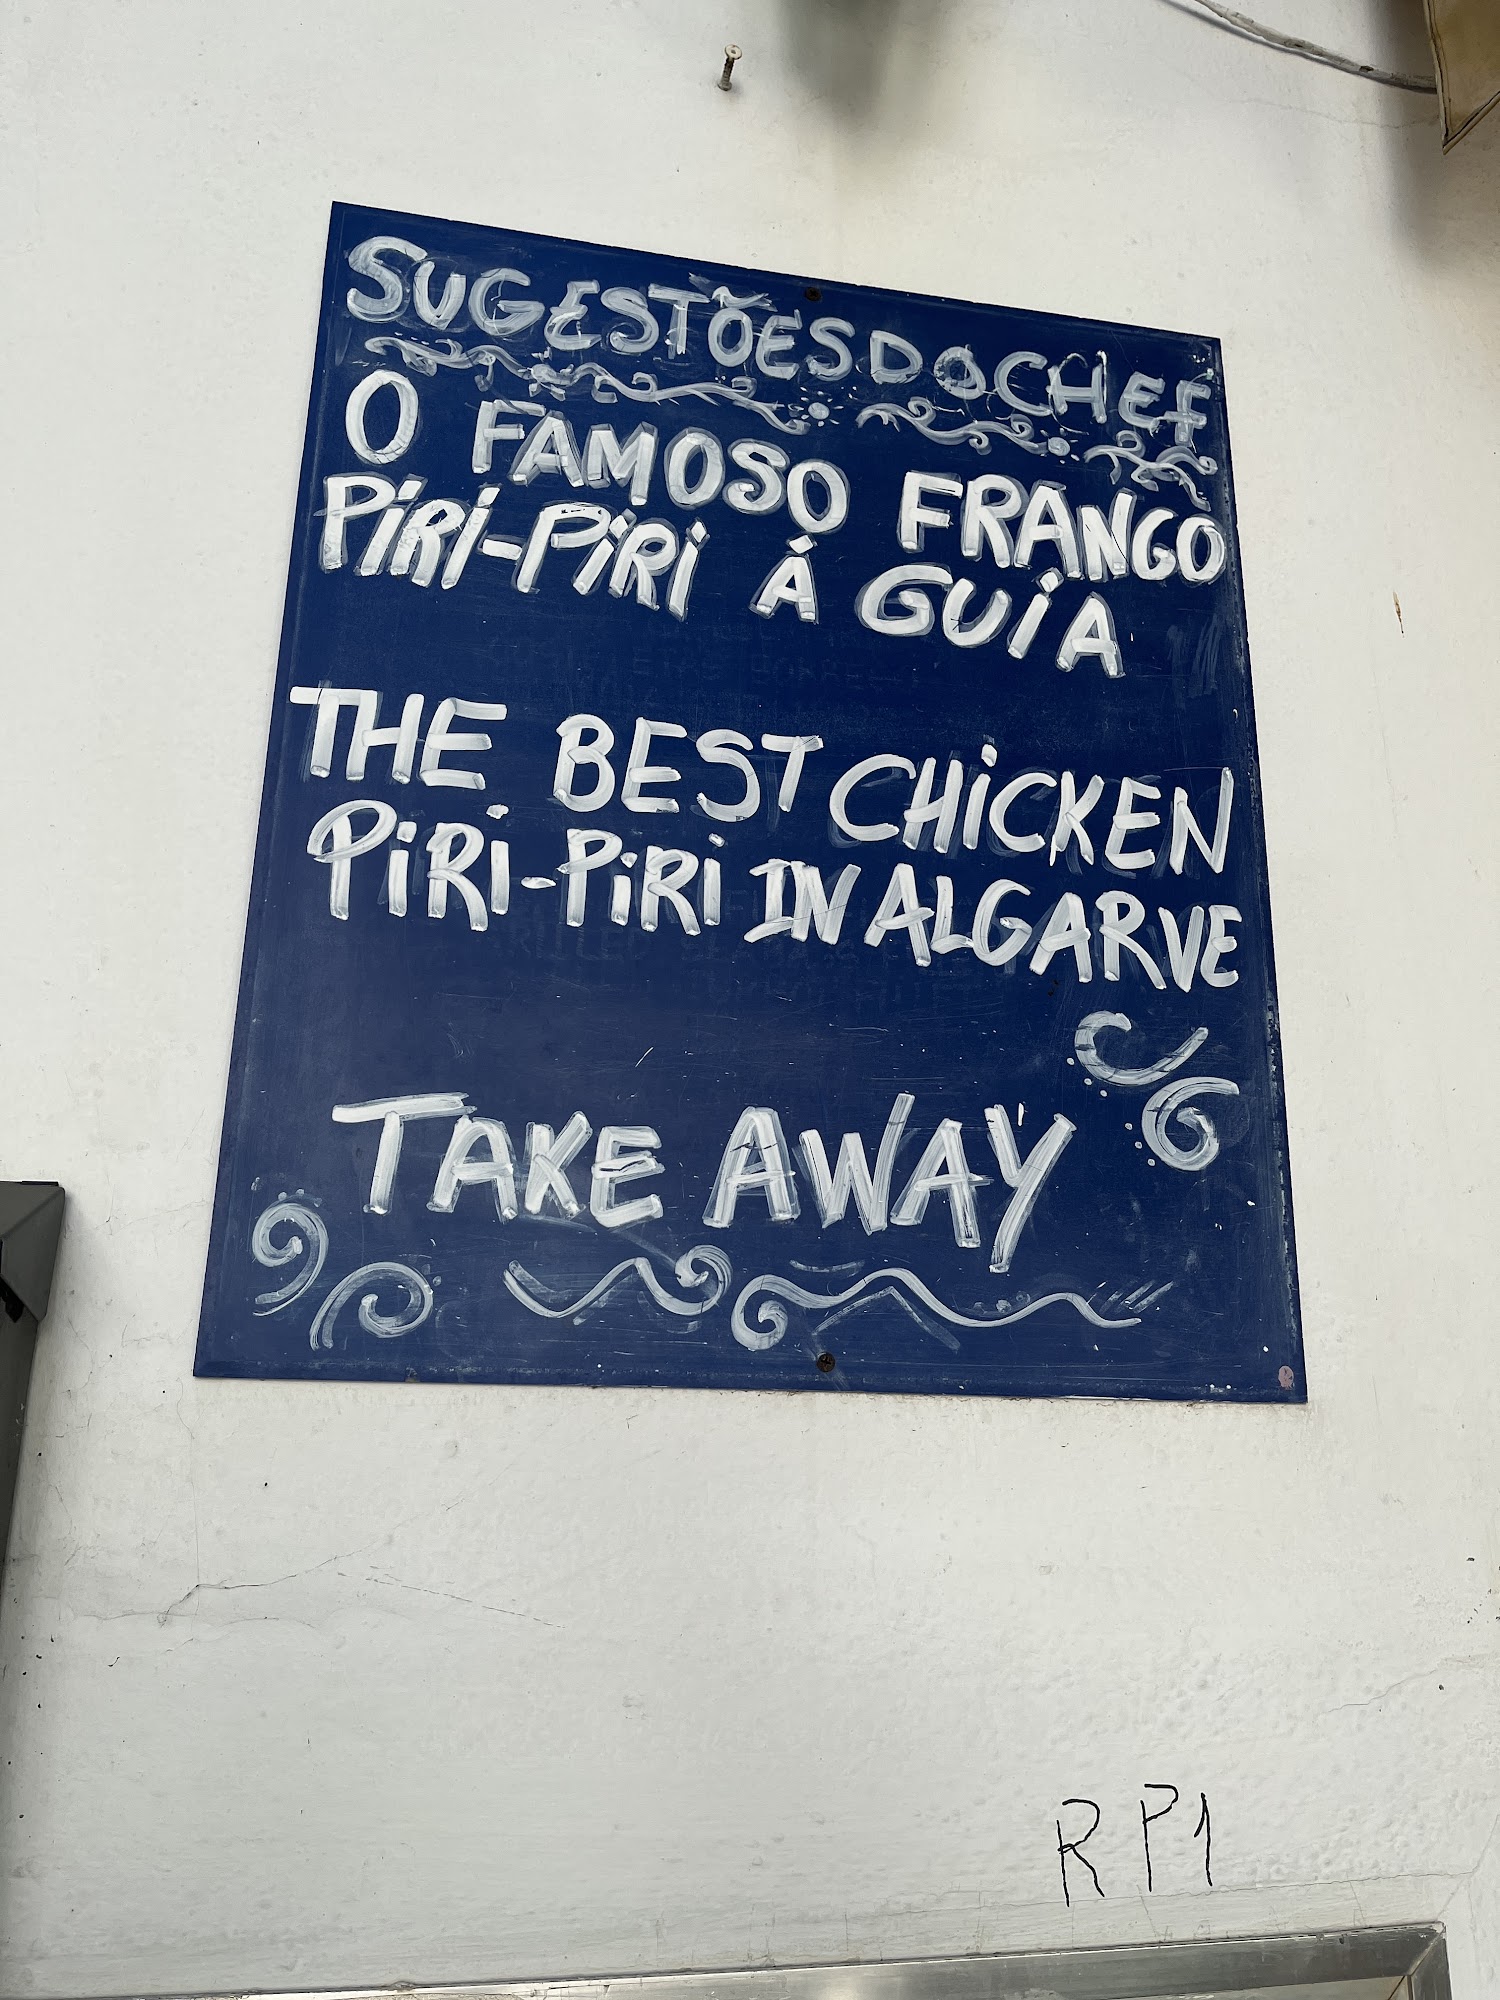 SUGESTÕES DO CHEF
O FAMOSO FRANGO
PIRI-PIRI À GUIA
THE BEST CHICKEN
PIRI-PIRI IN ALGARVE
TAKE AWAY
RP1